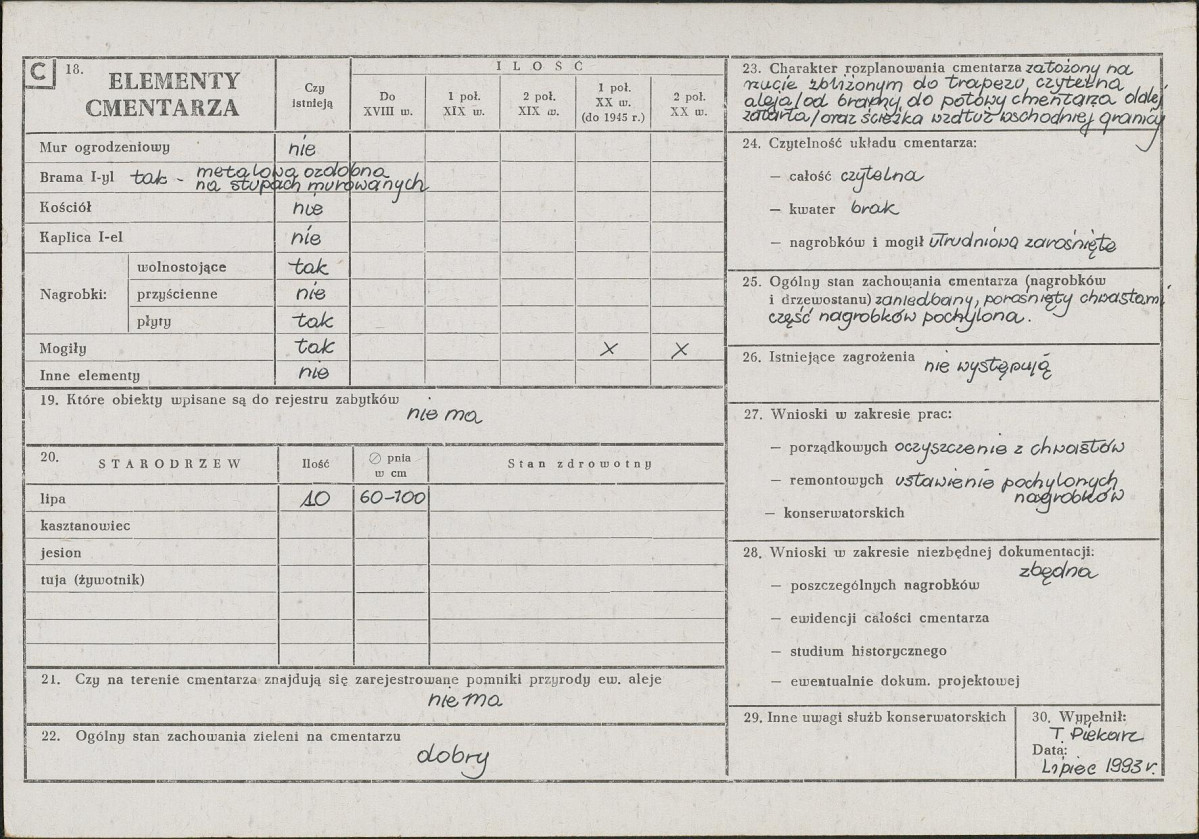 C 18. ELEMENTY CMENTARZA
Czy istnieją
ILOŚĆ
Do XVIII w.
1 poł. XIX w.
2 poł. XIX w.
1 poł. XX w. (do 1945 r.)
2 poł. XX w.
Mur ogrodzeniowy nie
Brama I-yl tak - metalową ozdobna
na słupach murowanych
Kościół nie
Kaplica I-el nie
Nagrobki: wolnostojące tak
przyścienne nie
płyty tak
Mogiły tak x x
Inne elementy nie
19. Które obiekty wpisane są do rejestru zabytków
nie ma
20. STARODRZEW Ilość ∅ pnia w cm Stan zdrowotny
lipa 10 60-100
kasztanowiec
jesion
tuja (żywotnik)
21. Czy na terenie cmentarza znajdują się zarejestrowane pomniki przyrody ew. aleje
nie ma
22. Ogólny stan zachowania zieleni na cmentarzu
dobry
23. Charakter rozplanowania cmentarza założony na
rzucie zbliżonym do trapezu, czytelna
aleja /od bramy do połowy cmentarza dalej
zatarta/ oraz ścieżka wzdłuż wschodniej granicy
24. Czytelność układu cmentarza:
— całość czytelna
— kwater brak
— nagrobków i mogił utrudnioną zarośnięte
25. Ogólny stan zachowania cmentarza (nagrobków
i drzewostanu) zaniedbany, porośnięty chwastami
część nagrobków pochylona.
26. Istniejące zagrożenia nie występują
27. Wnioski w zakresie prac:
— porządkowych oczyszczenie z chwastów
— remontowych ustawienie pochylonych
nagrobków
— konserwatorskich
28. Wnioski w zakresie niezbędnej dokumentacji:
zbędna
— poszczególnych nagrobków
— ewidencji całości cmentarza
— studium historycznego
— ewentualnie dokum. projektowej
29. Inne uwagi służb konserwatorskich
30. Wypełnił:
T. Piekarz
Data:
Lipiec 1993 r.